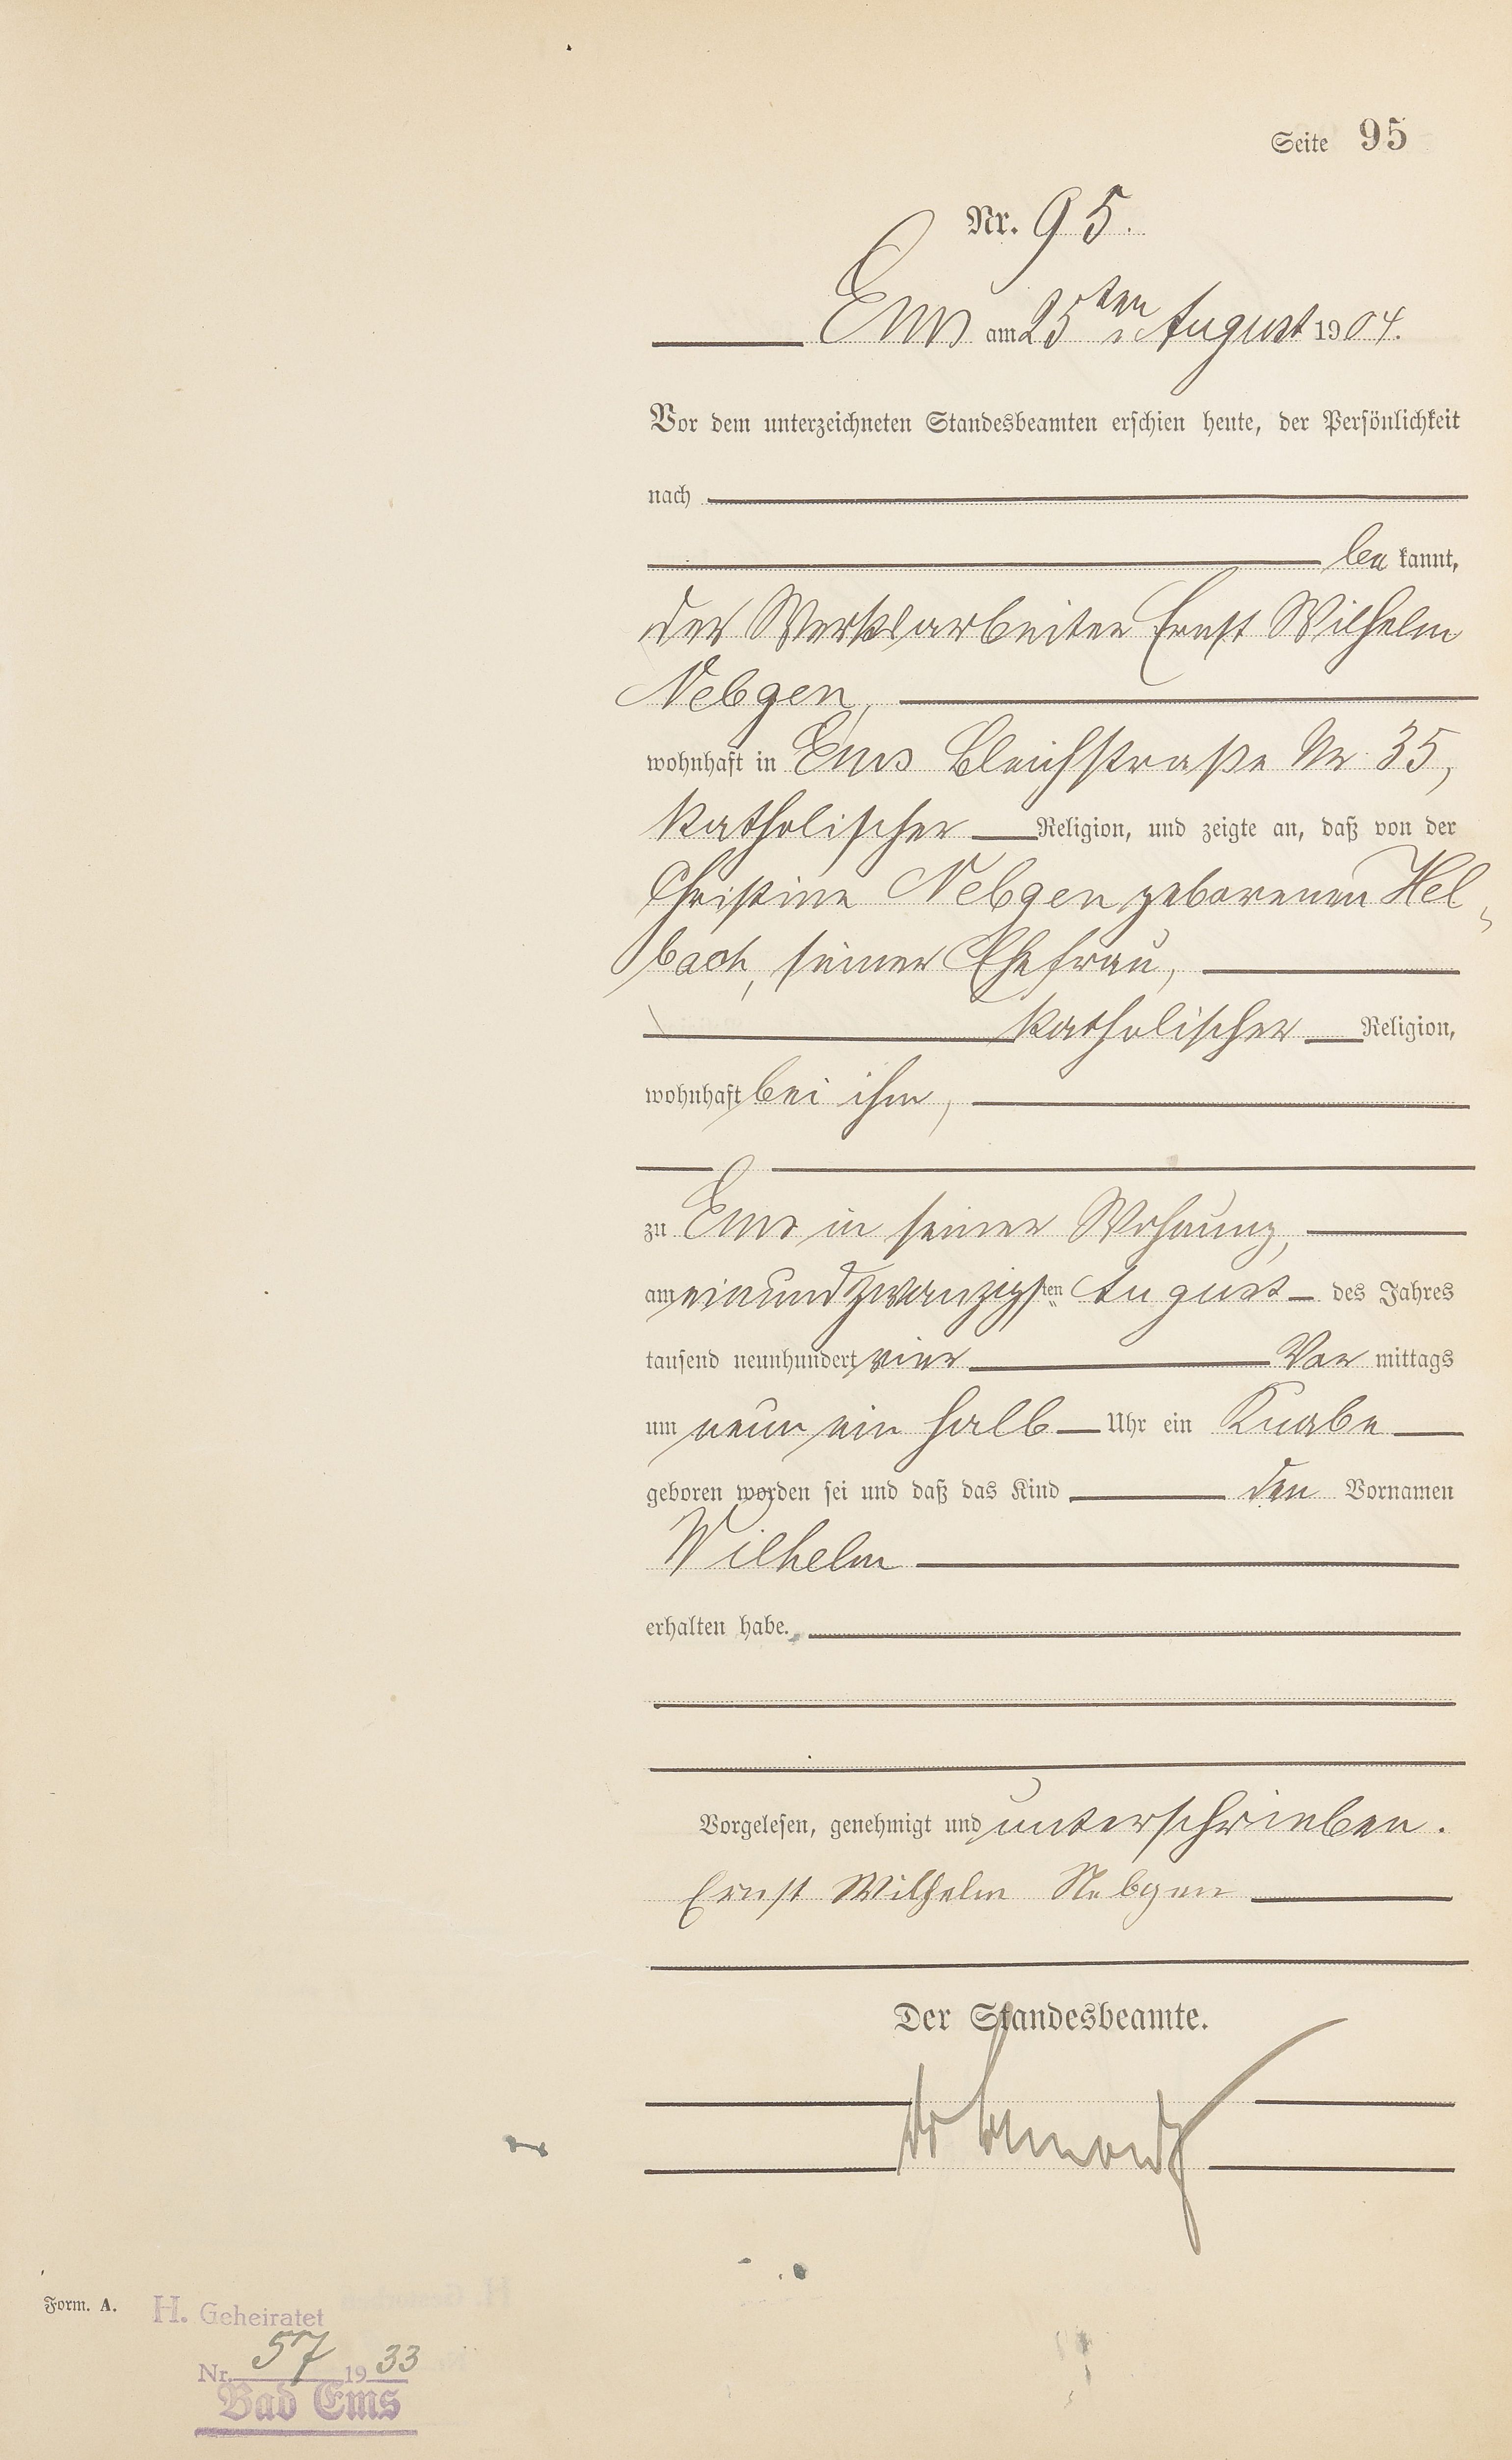 Seite 95
Nr. 95.
Ems am 25ten August 1904.
Vor dem unterzeichneten Standesbeamten erschien heute, der Persönlichkeit
nach
be kannt,
der Werksarbeiter Ernst Wilhelm
Nebgen,
wohnhaft in Ems Bleichstraße Nr. 35,
katholischer Religion, und zeigte an, daß von der
Christine Nebgen geborenen Hel
bach, seiner Ehefrau,
katholischer Religion,
wohnhaft bei ihm,
zu Ems in seiner Wohnung,
am einundzwanzigsten August des Jahres
tausend neunhundert vier Vor mittags
um neun ein halb Uhr ein Knabe
geboren worden sei und daß das Kind den Vornamen
Wilhelm
erhalten habe.
Vorgelesen, genehmigt und unterschrieben.
Ernst Wilhelm Nebgen
Der Standesbeamte.
Form. A.
H. Geheiratet
Nr. 57 1933
Bad Ems